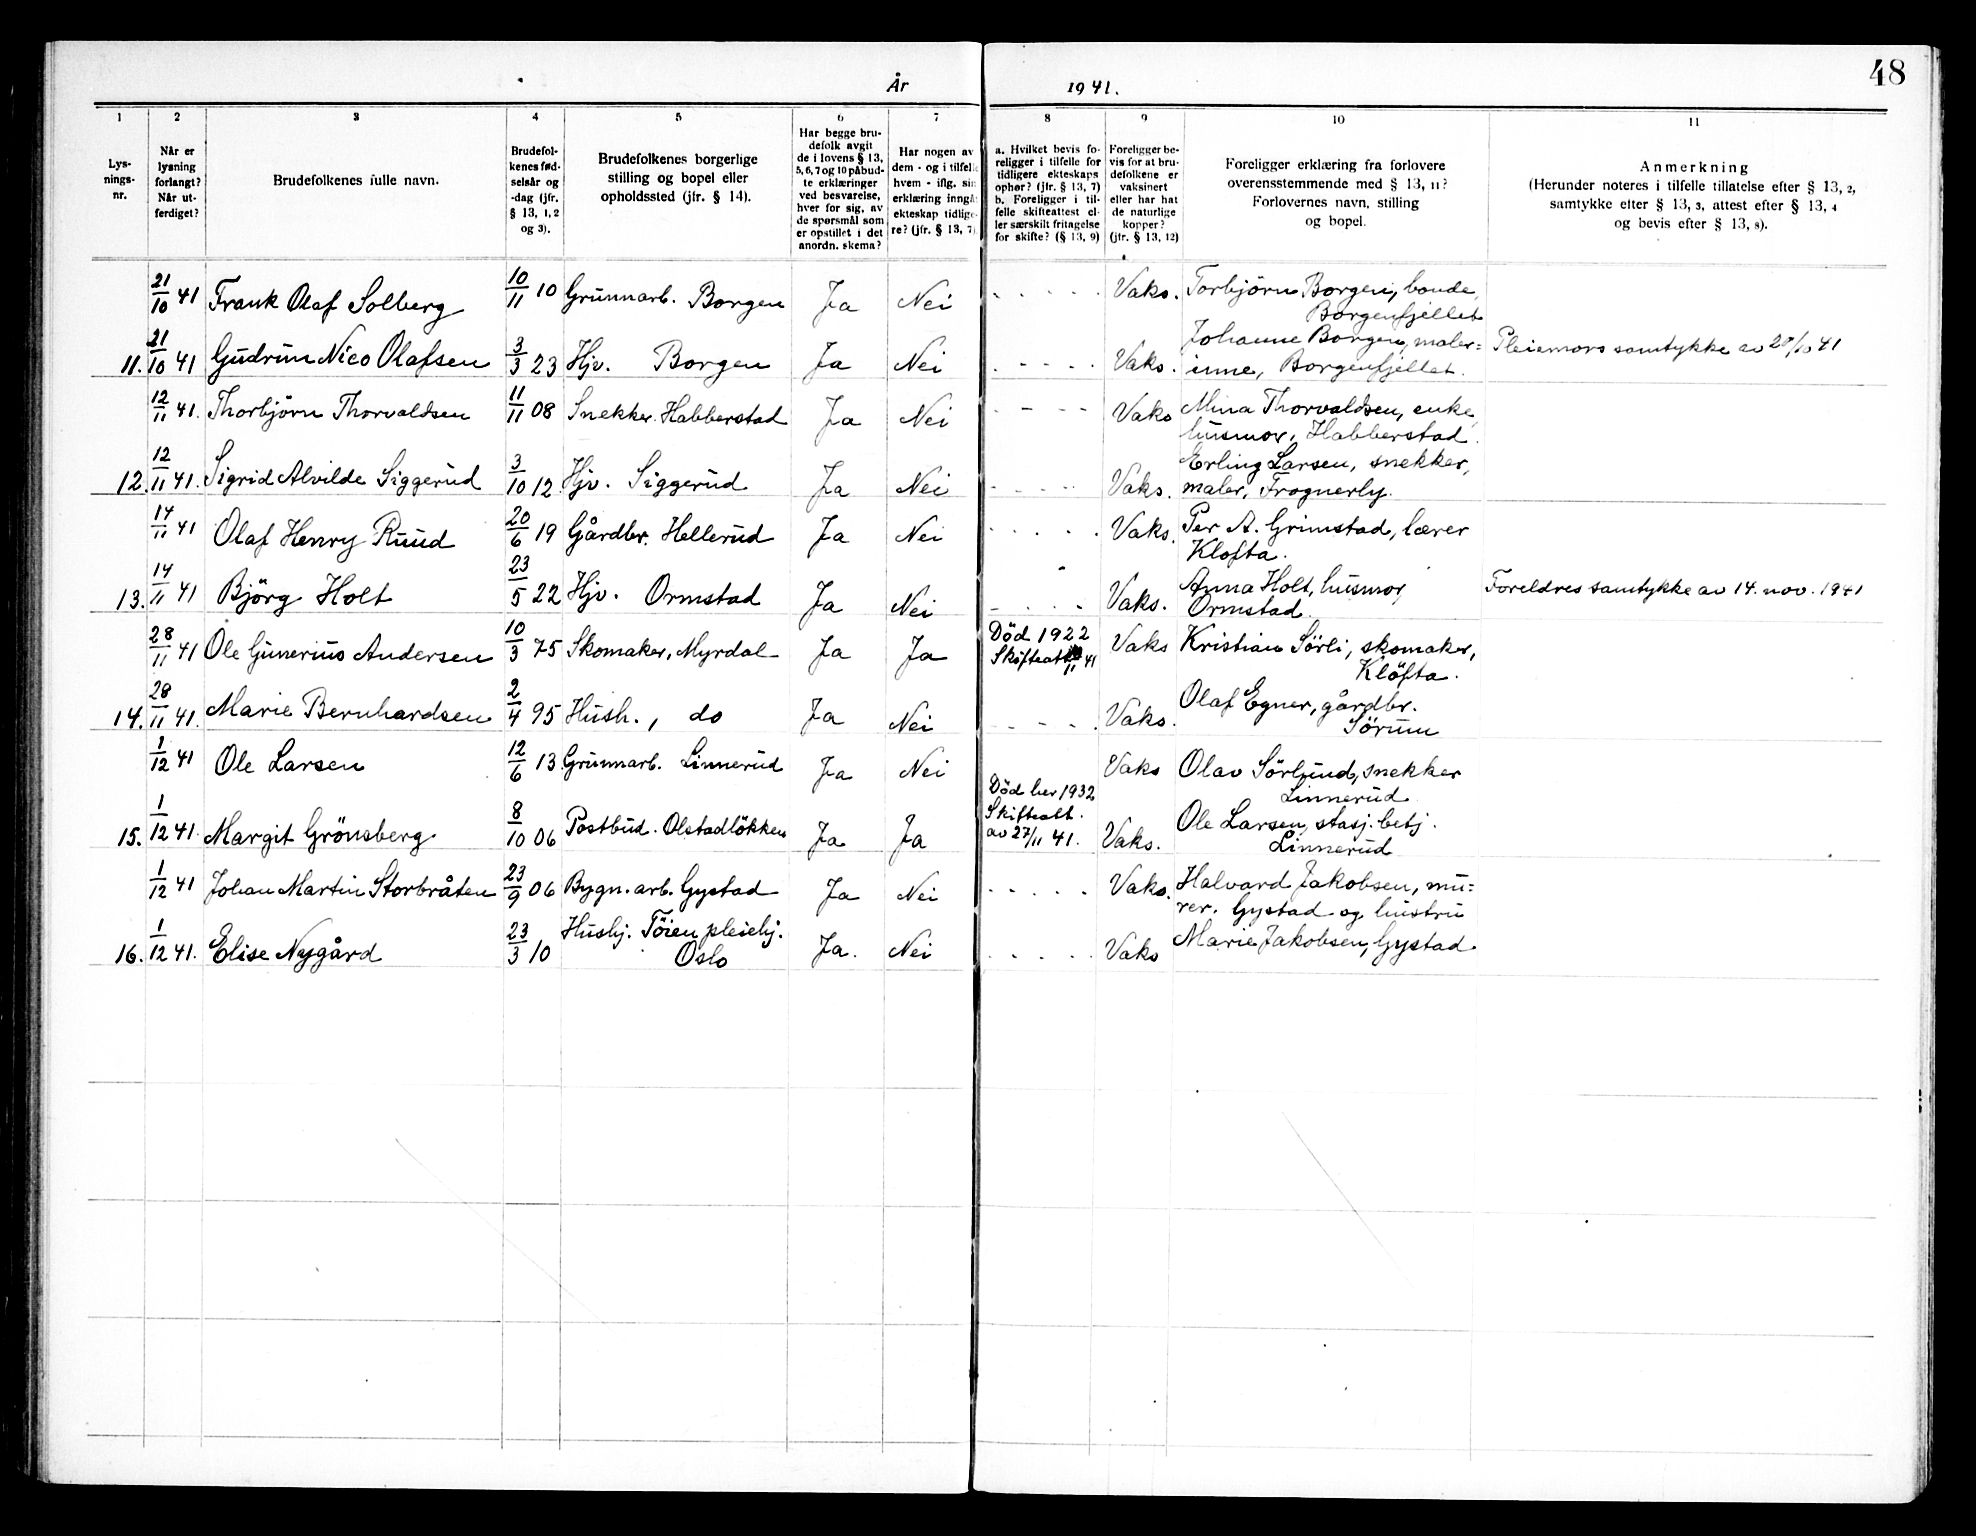 48
År 1941.
1 2 3 4 5 6 7 8 9 10 11
Lys-
nings-
nr.
Når er
lysning
forlangt?
Når ut-
ferdiget?
Brudefolkenes fulle navn.
Brudefol-
kenes fød-
selsår og
-dag (jfr.
§ 13, 1, 2
og 3).
Brudefolkenes borgerlige
stilling og bopel eller
opholdssted (jfr. § 14).
Har begge bru-
defolk avgit
de i lovens § 13,
5, 6, 7 og 10 påbud-
te erklæringer
ved besvarelse,
hver for sig, av
de spørsmål som
er opstillet i det
anordn. skema?
Har nogen av
dem - og i tilfelle
hvem - iflg. sin
erklæring inngå
ekteskap tidlige-
re? (jfr. § 13, 7)
a. Hvilket bevis fo-
religger i tilfelle for
tidligere ekteskaps
ophør? (jfr. § 13, 7)
b. Foreligger i til-
felle skifteattest el-
ler særskilt fritagelse
for skifte? (§ 13, 9)
Foreligger be-
vis for at bru-
defolkene er
vaksinert
eller har hat
de naturlige
kopper?
(jfr. § 13, 12)
Foreligger erklæring fra forlovere
overensstemmende med § 13, 11?
Forlovernes navn, stilling
og bopel.
Anmerkning
(Herunder noteres i tilfelle tillatelse efter § 13, 2,
samtykke efter § 13, 3, attest efter § 13, 4
og bevis efter § 13, 8).
21/10 41 Frank Olaf Solberg 10/11 10 Grunnarb. Borgen Ja Nei - - - - - Vaks. Torbjörn Borgen, bonde,
Borgenfjellet
11. 21/10 41 Gudrun Nico Olafsen 3/3 23 Hjv. Borgen Ja Nei - - - - - Vaks. Johanne Borgen, maler=
inne, Borgenfjellet. Pleiemors samtykke av 20/10 41
12/11 41. Thorbjörn Thorvaldsen 11/11 08 Snekker. Habberstad Ja Nei - - - - Vaks Mina Thorvaldsen, enke,
husmor, Habberstad.
12. 12/11 41. Sigrid Alvilde Siggerud 3/10 12 Hjv. Siggerud Ja Nei - - - - Vaks. Erling Larsen, snekker,
maler, Frognerly.
14/11 41 Olaf Henry Ruud 20/6 19 Gårdbr. Hellerud Ja Nei - - - - Vaks. Per A. Grimstad, lærer
Klofta.
13. 14/11 41 Björg Holt 23/5 22 Hjv. Ormstad Ja Nei - - - - Vaks. Anna Holt, husmor,
Ormstad. Foreldres samtykke av 14. nov. 1941
28/11 41 Ole Gunerius Andersen 10/3 75 Skomaker, Myrdal Ja Ja Död 1922
Skifteatt. 11 41 Vaks Kristian Sörli, skomaker,
Klöfta.
14. 28/11 41. Marie Bernhardsen 2/4 95 Hush., do Ja Nei - - - - Vaks. Olaf Egner, gårdbr.
Sörum
1/12 41 Ole Larsen 12/6 13 Grunnarb. Linnerud Ja Nei Vaks Olav Sörlund, snekker
Linnerud
15. 1/12 41. Margit Grönsberg 8/10 06 Postbud. Olstadlökken Ja Ja Död her 1932
Skifteatt.
av 27/11 41. Vaks. Ole Larsen, stasj. betj.
Linnerud
1/12 41 Johan Martin Storbråten 23/9 06 Bygn. arb. Gystad Ja Nei - - - - - Vaks. Halvard Jakobsen, mu=
rer. Gystad og hustru
16. 1/12 41. Elise Nygård 23/3 10 Hushj. Töien pleiehj.
Oslo Ja. Nei - - - - - Vaks Marie Jakobsen, Gystad.